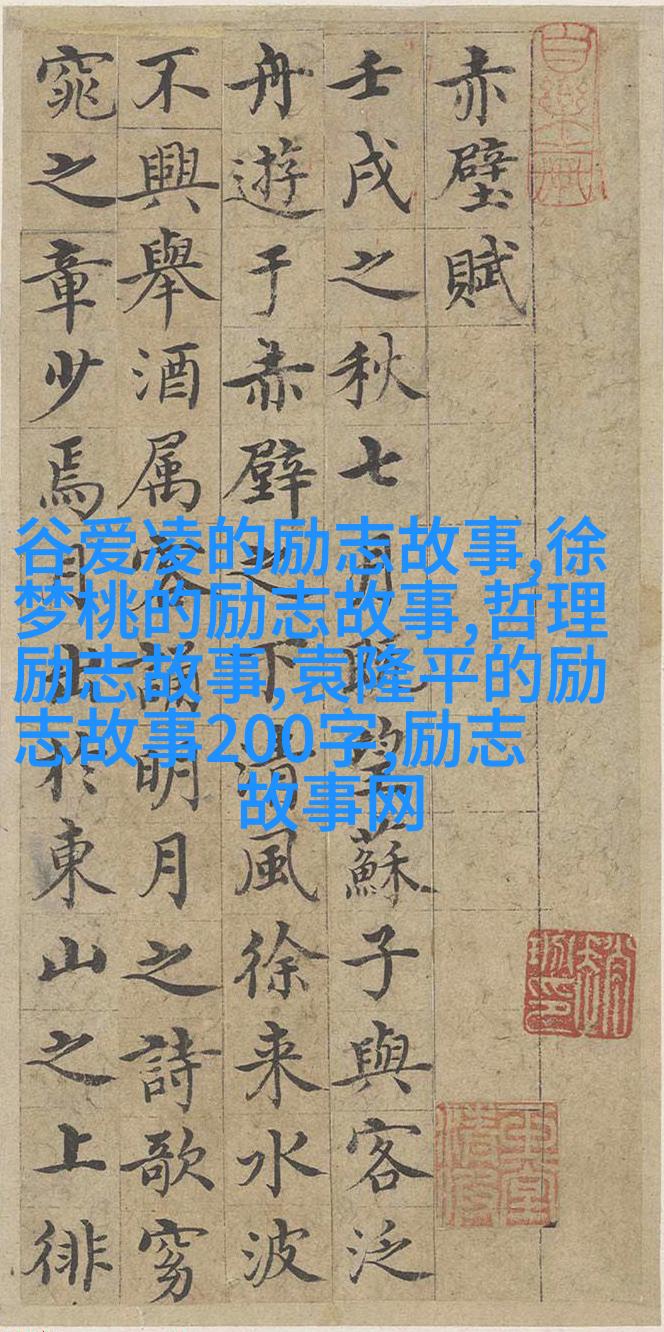 赤壁賦
壬戌之秋七月既望蘇子與客泛
舟遊于赤壁之下清風徐来水波
不興舉酒属客誦明月之詩歌窈
窕之章少焉月出於東山之上徘
谷爱凌的励志故事,徐
梦桃的励志故事,哲理
励志故事,袁隆平的励
志故事200字,励志
故事网